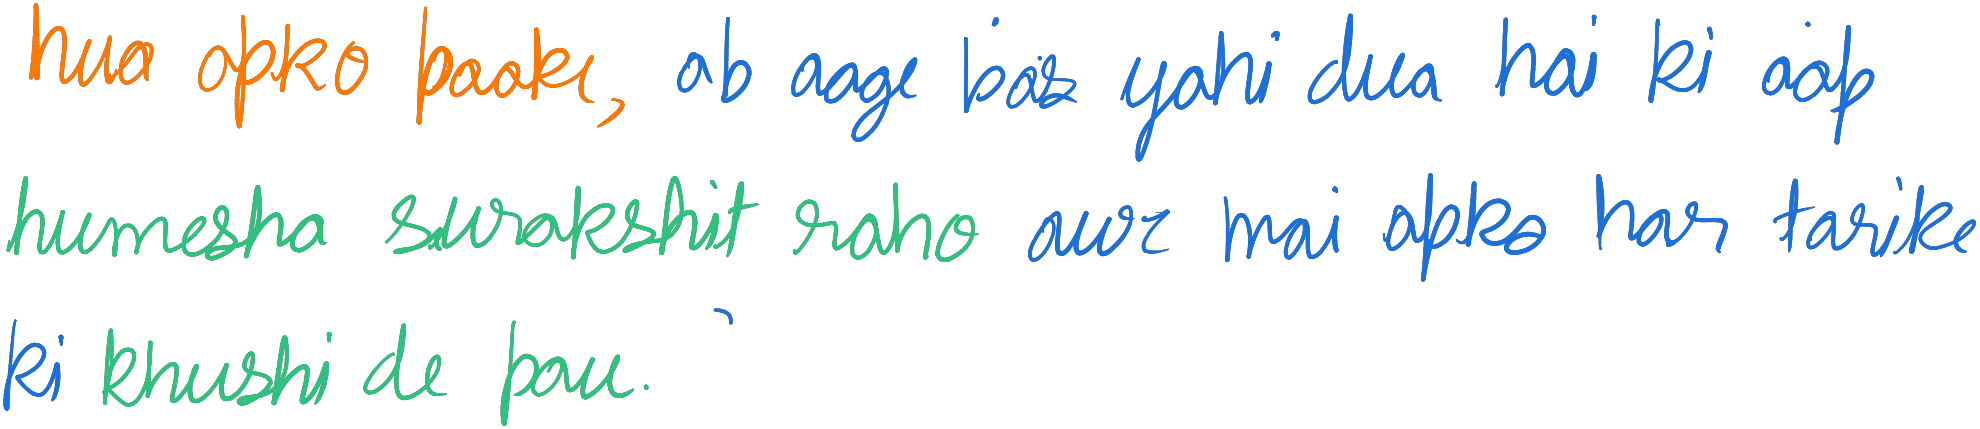 hua apko paake, ab aage bas yahi dua hai ki aap
humesha surakshit raho aur mai apko har tarike
ki khushi de pau.